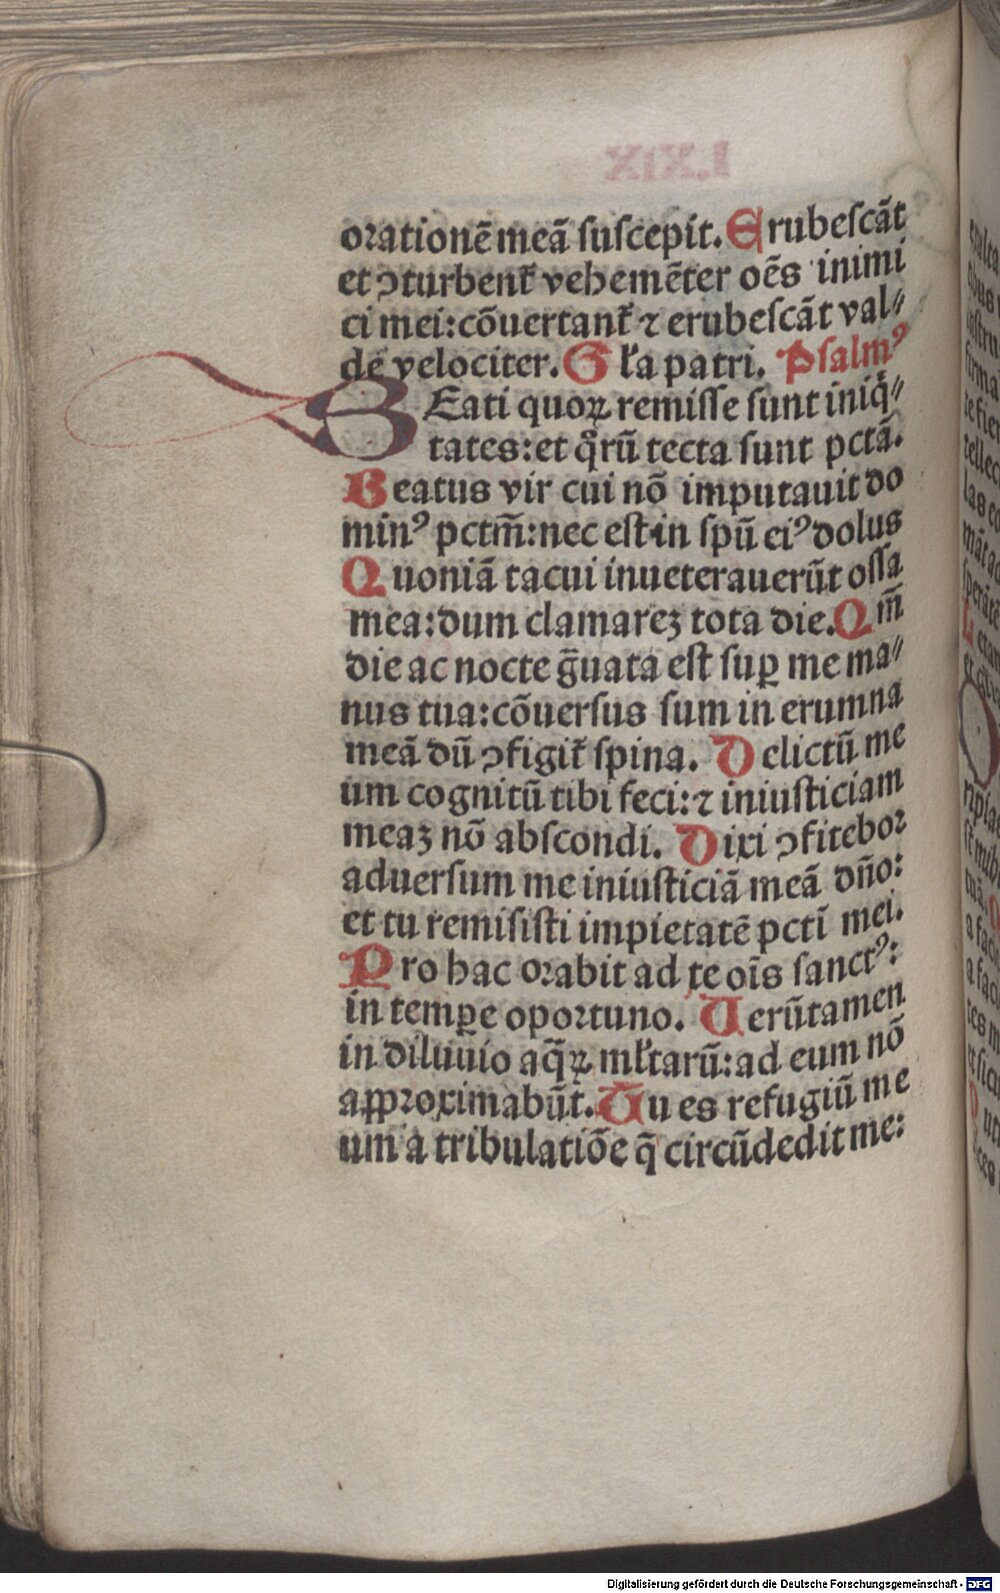 orationē meā ſuſcepit. Erubeſcāt
et ↄturbent᷑ vehemēter oēs inimi
ci mei: cōuertant᷑ ⁊ erubeſcāt val⸗
de velociter. Gl'a patri. Pſalmꝰ
BEati quoꝝ remiſſe ſunt iniq̇⸗
tates: et qͦrū tecta ſunt pctā.
Beatus vir cui nō imputauit do
minꝰ pctm̄: nec eſt in ſpū eiꝰ dolus
Quoniā tacui inueterauerūt oſſa
mea: dum clamareꝫ tota die. Qm̄
die ac nocte ḡuata eſt ſuꝑ me ma⸗
nus tua: cōuerſus ſum in erumna
meā dū ↄfigit᷑ ſpina. Delictū me
um cognitū tibi feci: ⁊ iniuſticiam
meaꝫ nō abſcondi. Dixi ↄfitebor
aduerſum me iniuſticiā meā dn̄o:
et tu remiſiſti impietatē pcti̅ mei.
Pro hac orabit ad te oīs ſanctꝰ:
in temꝑe oportuno. Uerūtamen
in diluuio aq̄ꝝ ml'tarū: ad eum nō
aꝓproximabūt. Tu es refugiū me
um a tribulatiōe q̄ circūdedit me:
Digitalisierung gefördert durch die Deutsche Forschungsgemeinschaft - DFG